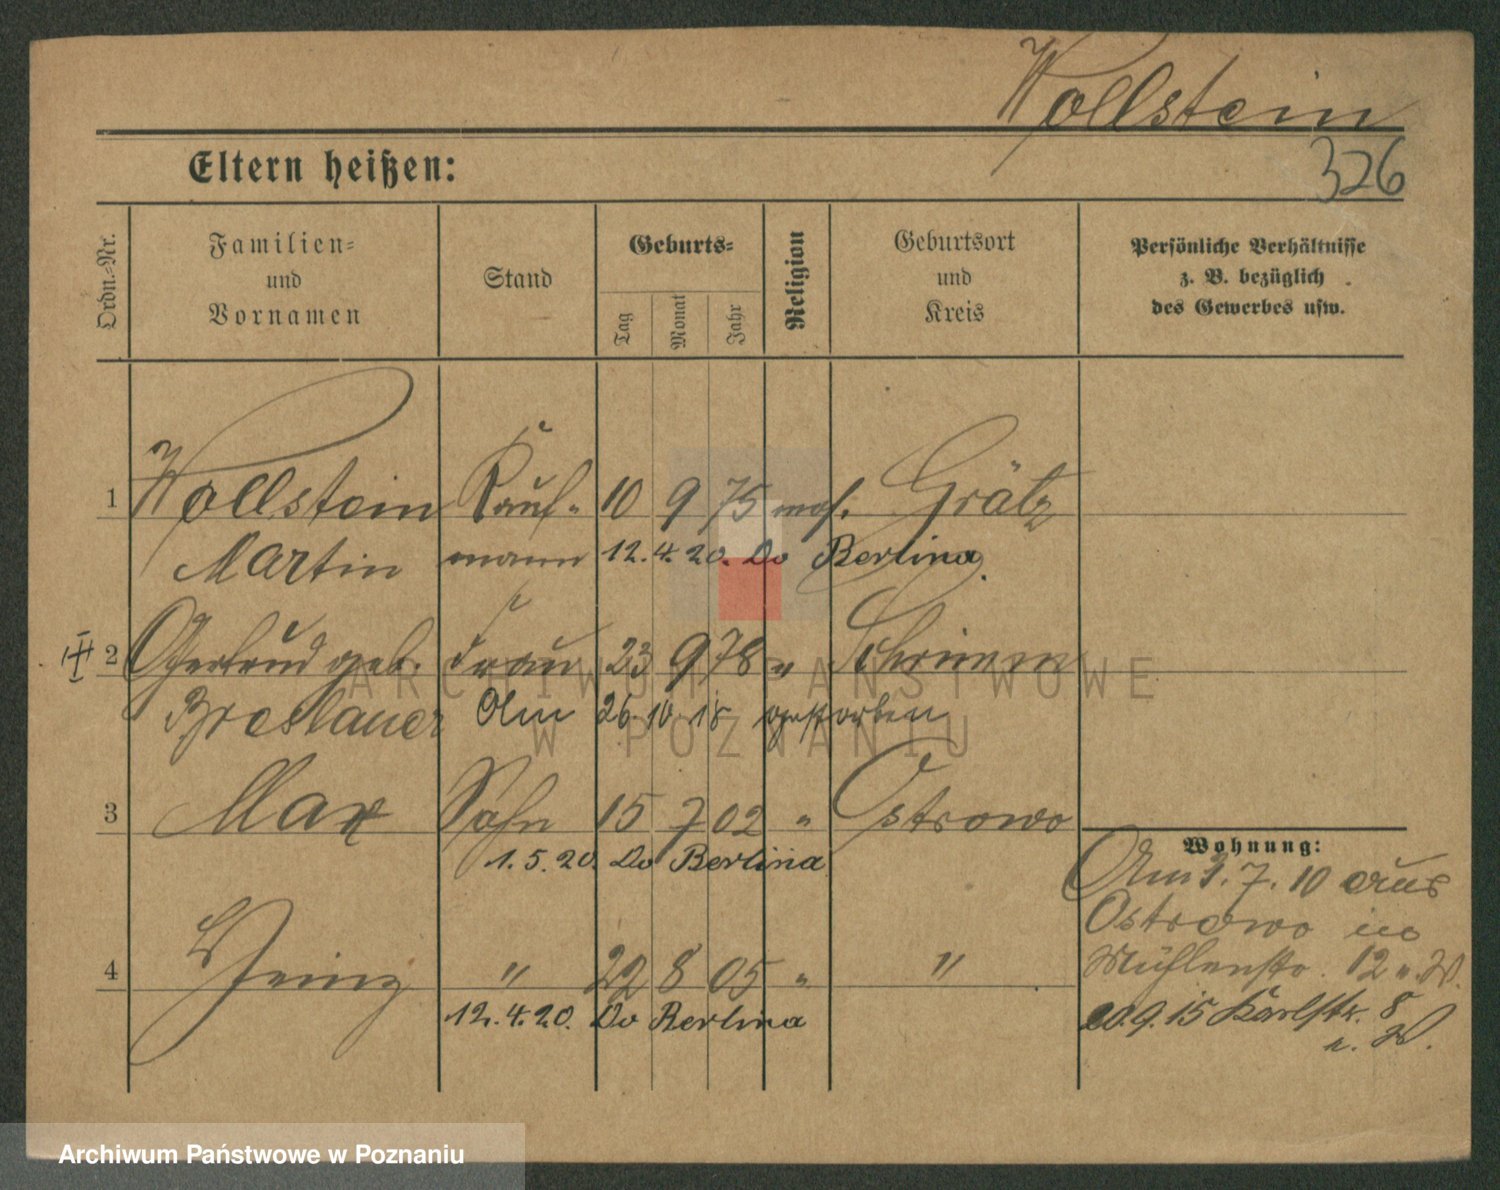 Wollstein
326
Eltern heißen:
Ordn.-Nr.
Familien-
und
Vornamen
Stand
Geburts-
Tag
Monat
Jahr
Religion
Geburtsort
und
Kreis
Persönliche Verhältnisse
z. B. bezüglich
des Gewerbes usw.
1 Wollstein Kauf- 10 9 75 mos. Grätz
Martin mann 12.4.20. Do Berlina.
2 Gertrud geb. Frau 23 9 78 " Schrimm
Breslauer Am 26 10 18 gestorben
3 Max Sohn 15 7 02 " Ostrowo
1.5.20. Do Berlina
4 Heinz " 22 8 05 " "
12.4.20. Do Berlina
Wohnung:
Am 3.7.10 aus
Ostrowo in
Mühlenstr. 12 u. W.
20.9.15 Karlstr. 8
u. W.
ARCHIWUM PAŃSTWOWE
W POZNANIU
Archiwum Państwowe w Poznaniu